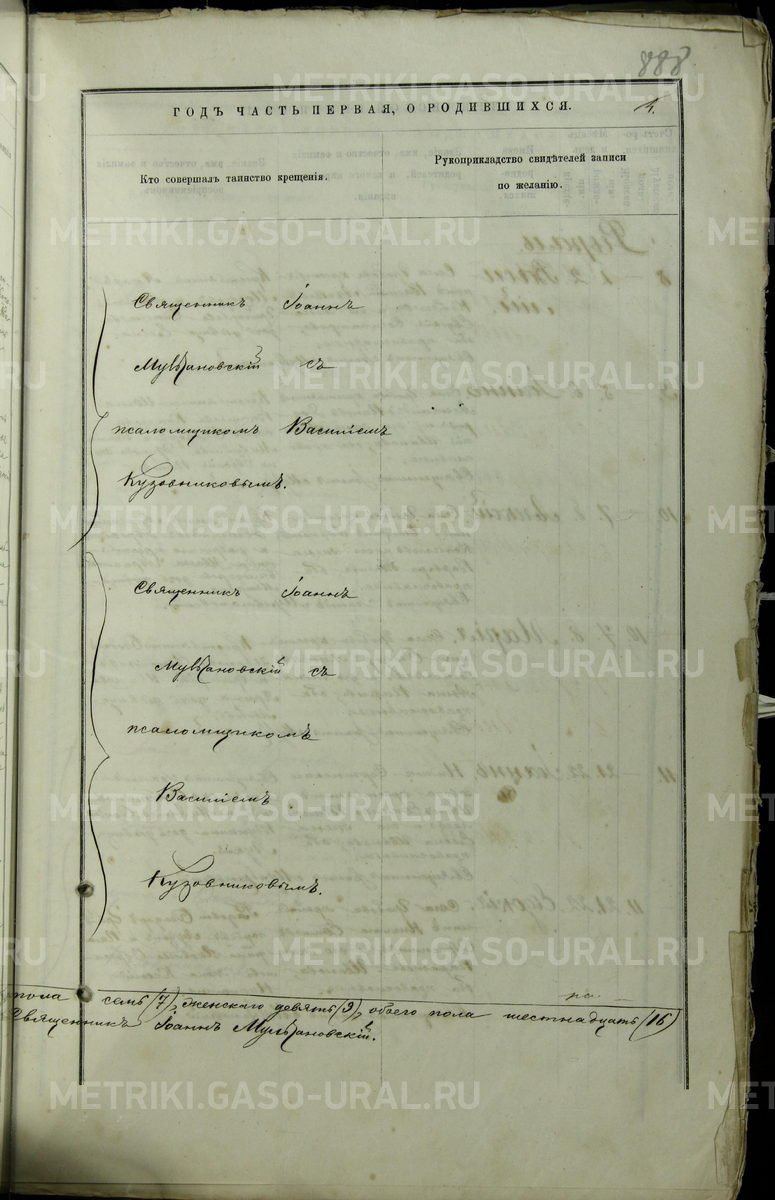 888
ГОДЪ ЧАСТЬ ПЕРВАЯ, О РОДИВШИХСЯ.
Кто совершалъ таинство крещенія.
Рукоприкладство свидѣтелей записи
по желанію.
Священникъ Іоаннъ
Мултановскій съ
псаломщикомъ Василіемъ
Кузовниковымъ.
Священникъ Іоаннъ
Мултановскій съ
псаломщикомъ
Василіемъ
Кузовниковымъ.
пола семь (7), женскаго девять (9), обоего пола шестнадцать (16)
Священникъ Іоаннъ Мултановскій.
METRIKI.GASO-URAL.RU